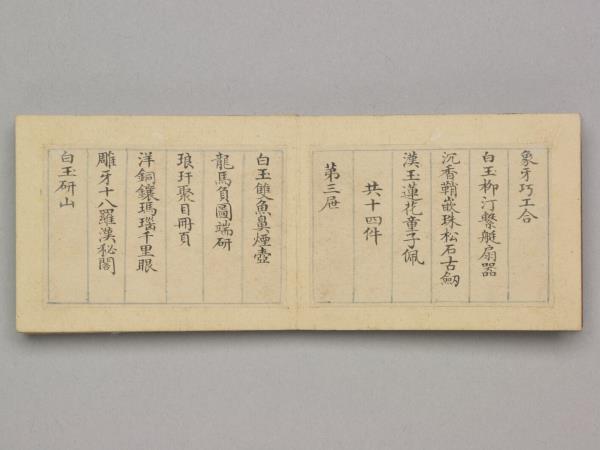 象牙巧工合
白玉柳汀繫艇扇器
沉香鞘嵌珠松石古劒
漢玉蓮花童子佩
共十四件
第三屜
白玉雙魚鼻煙壺
龍馬負圖端硏
琅玕聚目冊頁
洋銅鑲瑪瑙千里眼
雕牙十八羅漢秘閣
白玉硏山